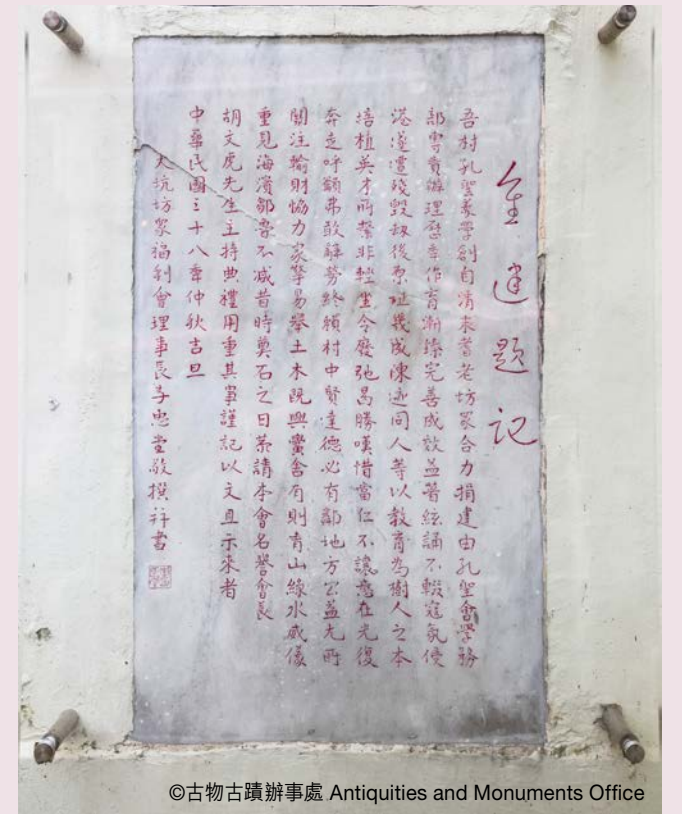 重建題記
吾村孔聖義學創自清末耆老坊眾合力捐建由孔聖會學務
部專責辦理歷年作育漸臻完善成效益著絃誦不輟寇氛侵
港遂遭殘毀劫後原址幾成陳迹同人等以教育為樹人之本
培植英才所繫非輕坐令廢弛曷勝嘆惜當仁不讓應在光復
奔走呼籲弗敢辭勞終賴村中賢達德必有鄰地方公益尤所
關注輸財恊力眾擎易舉土木既興黌舍有則青山綠水咸儀
重見海濱鄒魯不減昔時奠石之日恭請本會名譽會長
胡文虎先生主持典禮用重其事謹記以文且示來者
中華民國三十八年仲秋吉旦
大坑坊眾福利會理事長李忠堂敬撰并書
©古物古蹟辦事處 Antiquities and Monuments Office